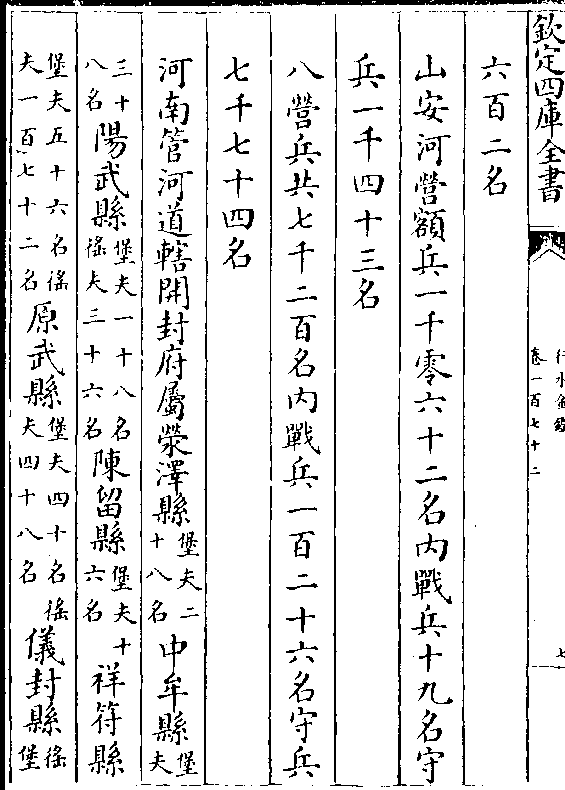 欽定四庫全書
行水金鑑
卷一百七十二
七
六百二名
山安河營額兵一千零六十二名内戰兵十九名守
兵一千四十三名
八營兵共七千二百名内戰兵一百二十六名守兵
七千七十四名
河南管河道轄開封府屬滎澤縣堡夫二十八名中牟縣堡夫
三十八名陽武縣堡夫一十八名徭夫三十六名陳留縣堡夫十六名祥符縣
堡夫五十六名徭夫一百七十二名原武縣堡夫四十名徭夫四十八名儀封縣徭堡